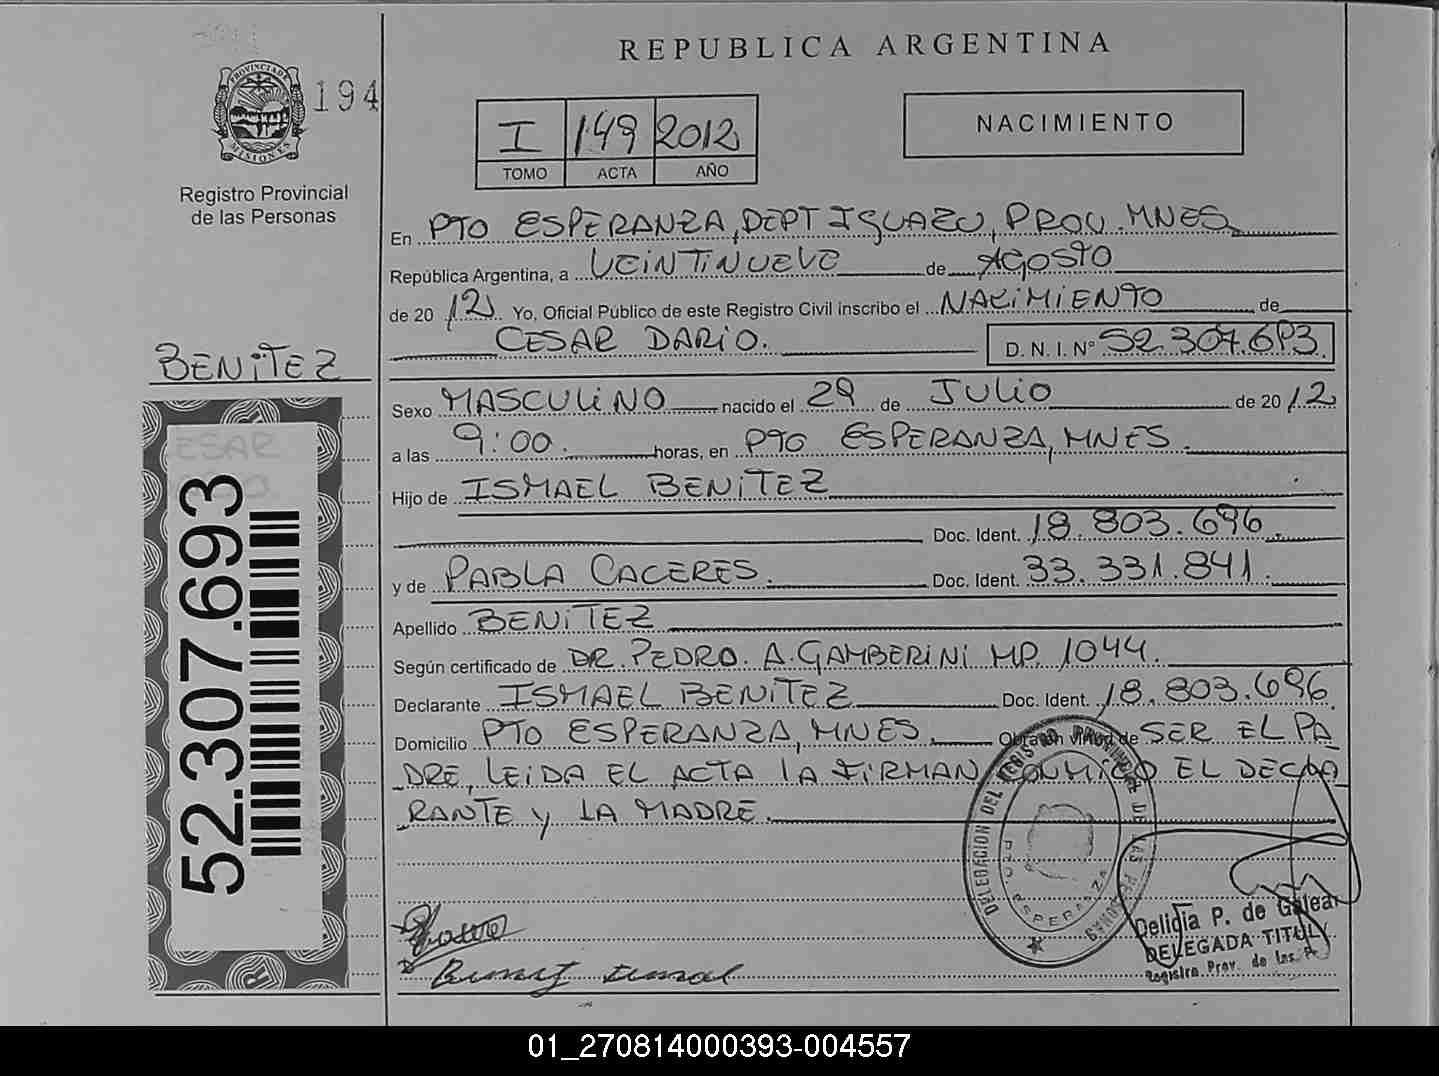 REPUBLICA ARGENTINA
PROVINCIA DE MISIONES
194
Registro Provincial
de las Personas
I 149 2012
TOMO ACTA AÑO
NACIMIENTO
En PTO ESPERANZA, DEPT IGUAZU, PROV. MNES
República Argentina, a VEINTINUEVE de AGOSTO
de 2012 Yo, Oficial Público de este Registro Civil inscribo el NACIMIENTO de
CESAR DARIO. D.N.I. Nº 52.307.693
BENITEZ
CESAR
52.307.693
Sexo MASCULINO nacido el 29 de JULIO de 2012
a las 9:00. horas, en PTO ESPERANZA, MNES.
Hijo de ISMAEL BENITEZ
Doc. Ident. 18.803.696
y de PABLA CACERES. Doc. Ident. 33.331.841.
Apellido BENITEZ
Según certificado de DR PEDRO. A. GAMBERINI MP. 1044.
Declarante ISMAEL BENITEZ Doc. Ident. 18.803.696
Domicilio PTO ESPERANZA, MNES. Obra en virtud de SER EL PA
DRE, LEIDA EL ACTA LA FIRMAN CONMIGO EL DECLA
RANTE y LA MADRE.
DELEGACION DEL REGISTRO PROVINCIAL DE LAS PERSONAS
PTO ESPERANZA
Delicia P. de Galear
DELEGADA TITUL
Registro Prov. de las P.
01_270814000393-004557